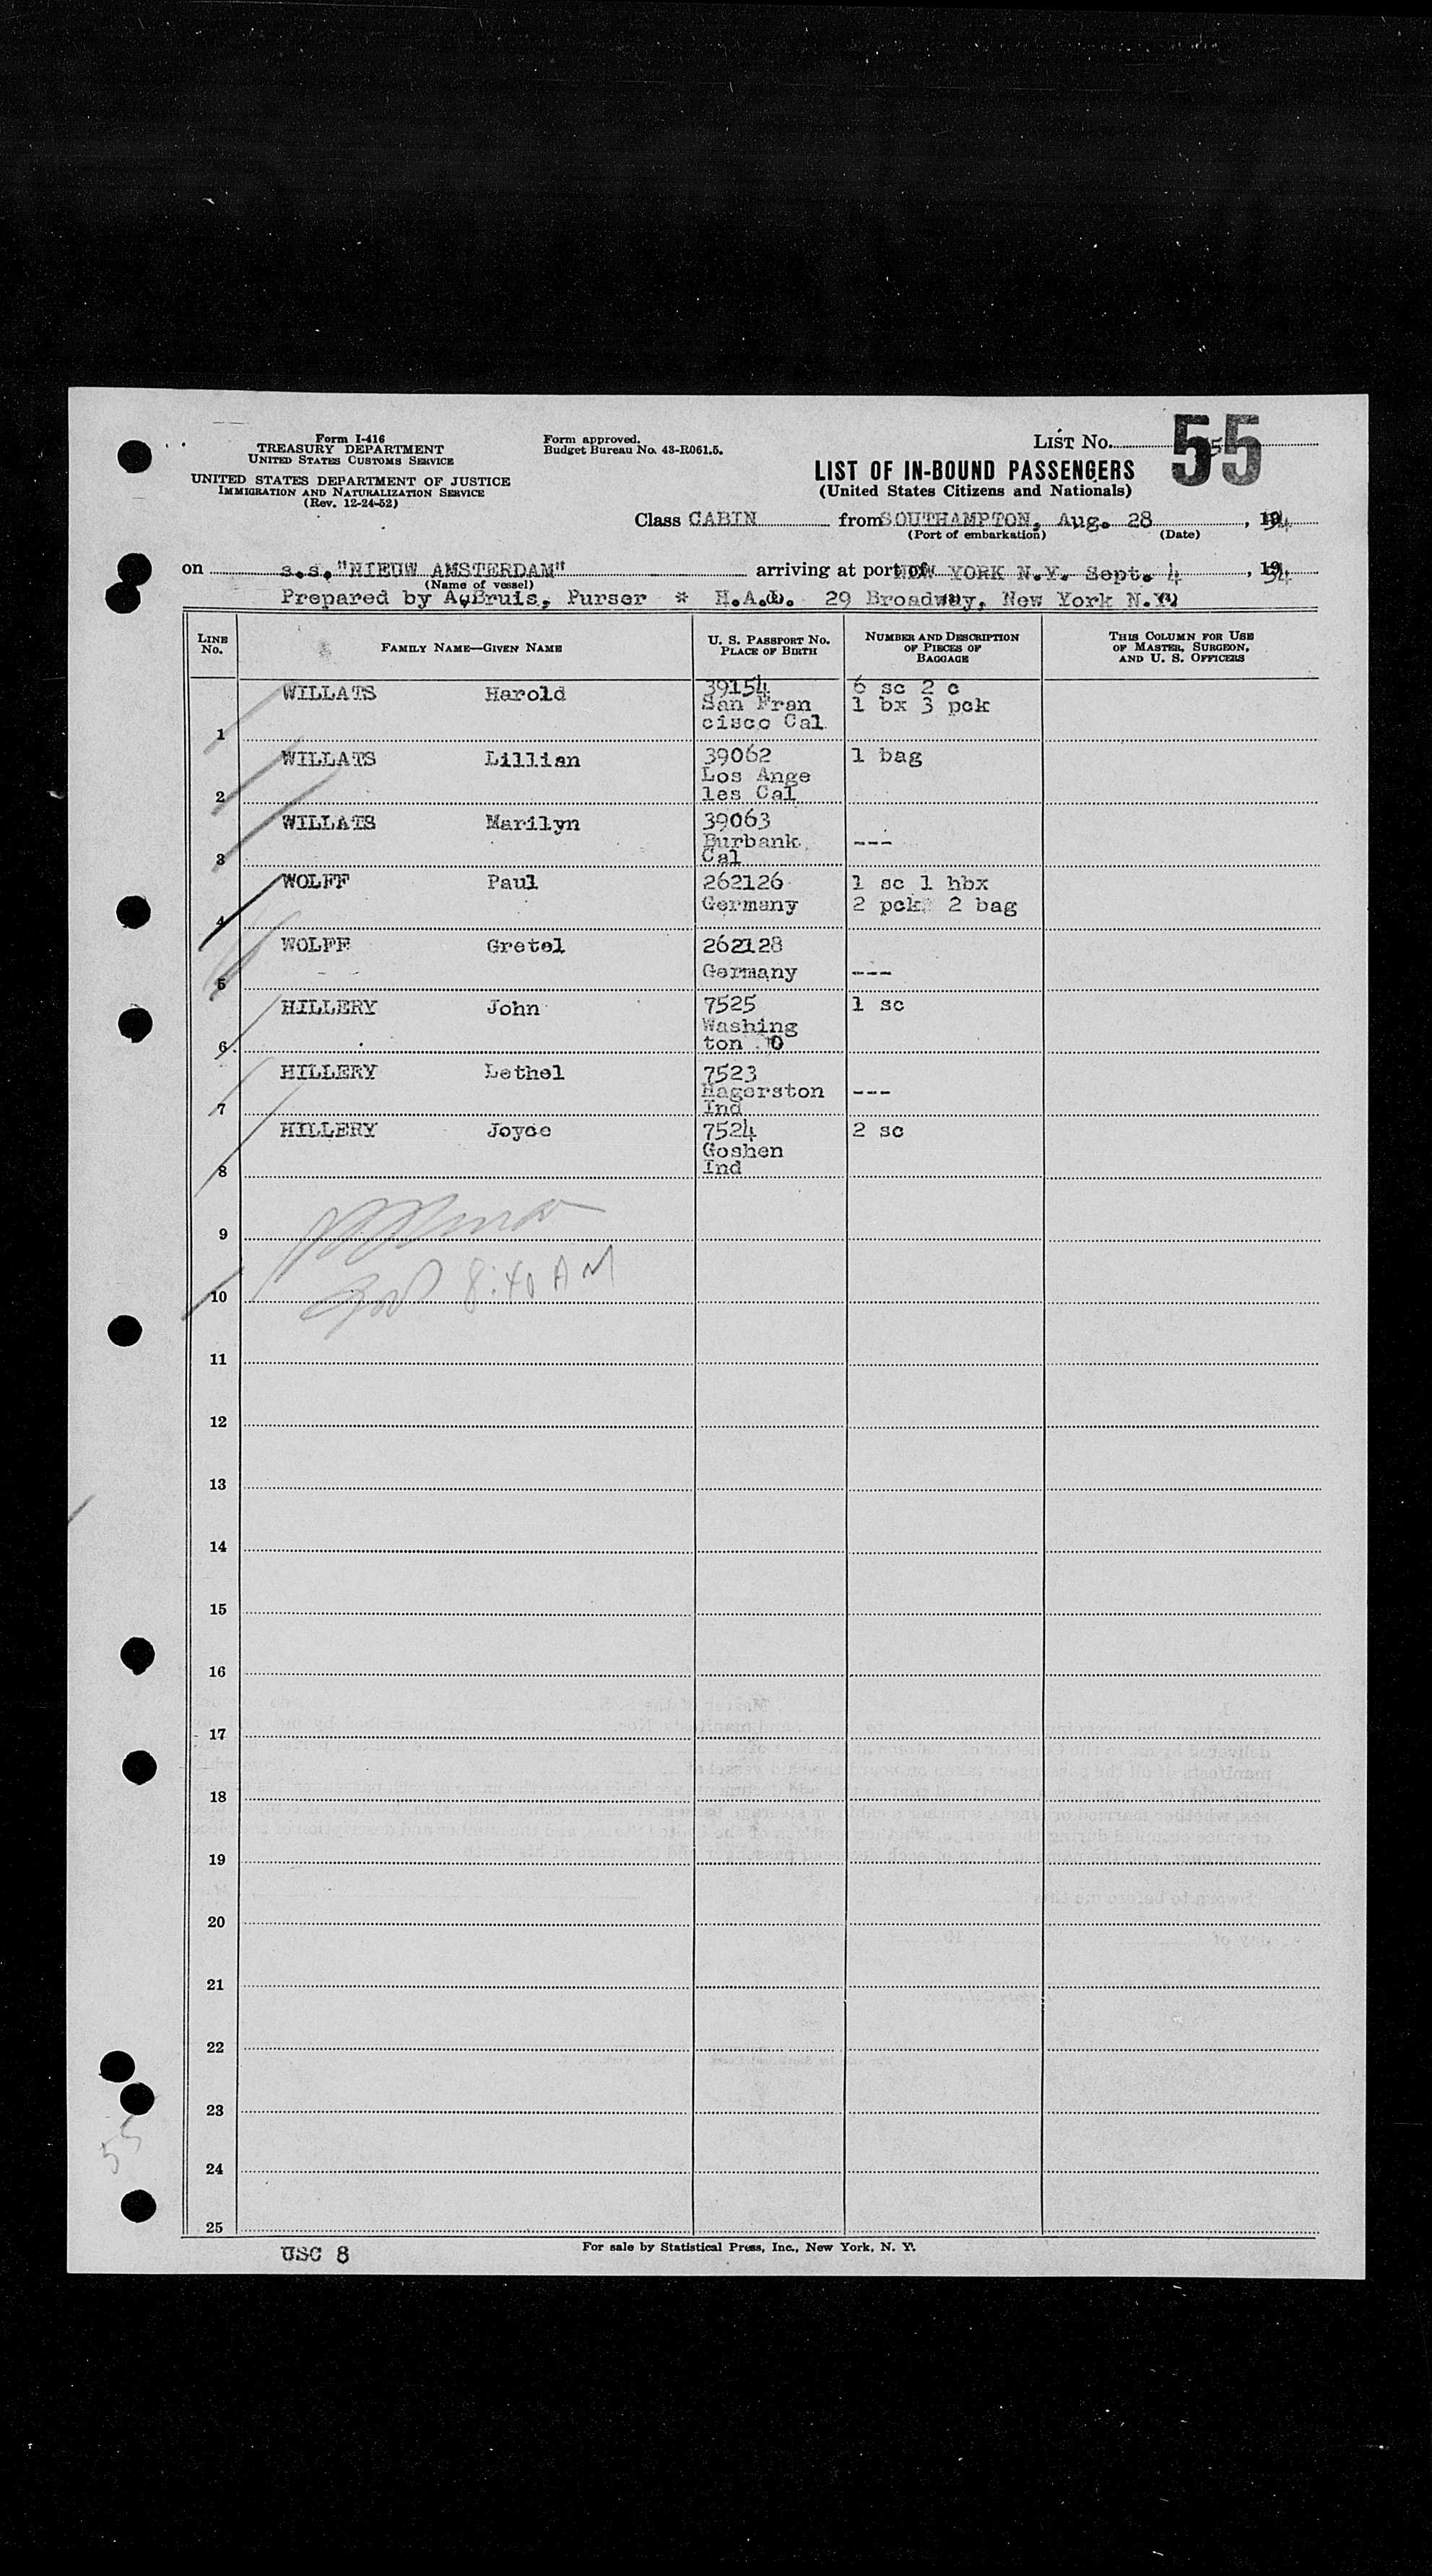 Form I-416
TREASURY DEPARTMENT
UNITED STATES CUSTOMS SERVICE
UNITED STATES DEPARTMENT OF JUSTICE
IMMIGRATION AND NATURALIZATION SERVICE
(Rev. 12-24-52)
Form approved.
Budget Bureau No. 43-R061.5.
LIST No. 55
LIST OF IN-BOUND PASSENGERS
(United States Citizens and Nationals)
Class CABIN from SOUTHAMPTON, Aug. 28, 1954
(Port of embarkation) (Date)
on s.s. "NIEUW AMSTERDAM" arriving at port of NEW YORK N.Y. Sept. 4, 1954
(Name of vessel)
Prepared by A.Bruis, Purser * H.A.L. 29 Broadway, New York N.Y.
LINE No. FAMILY NAME—GIVEN NAME U. S. PASSPORT NO. PLACE OF BIRTH NUMBER AND DESCRIPTION OF PIECES OF BAGGAGE THIS COLUMN FOR USE OF MASTER, SURGEON, AND U. S. OFFICERS
WILLATS Harold 39154 6 sc 2 c
San Fran 1 bx 3 pck
1 cisco Cal
WILLATS Lillian 39062 1 bag
Los Ange
2 les Cal
WILLATS Marilyn 39063
Burbank ---
3 Cal
WOLFF Paul 262126 1 sc 1 hbx
4 Germany 2 pck 2 bag
WOLFF Gretel 262128
5 Germany ---
HILLERY John 7525 1 sc
Washing
6 ton O
HILLERY Lethel 7523
Hagerston ---
7 Ind
HILLERY Joyce 7524 2 sc
Goshen
8 Ind
9
8:40 AM
10
11
12
13
14
15
16
17
18
19
20
21
22
23
55
24
25
USC 8
For sale by Statistical Press, Inc., New York, N. Y.